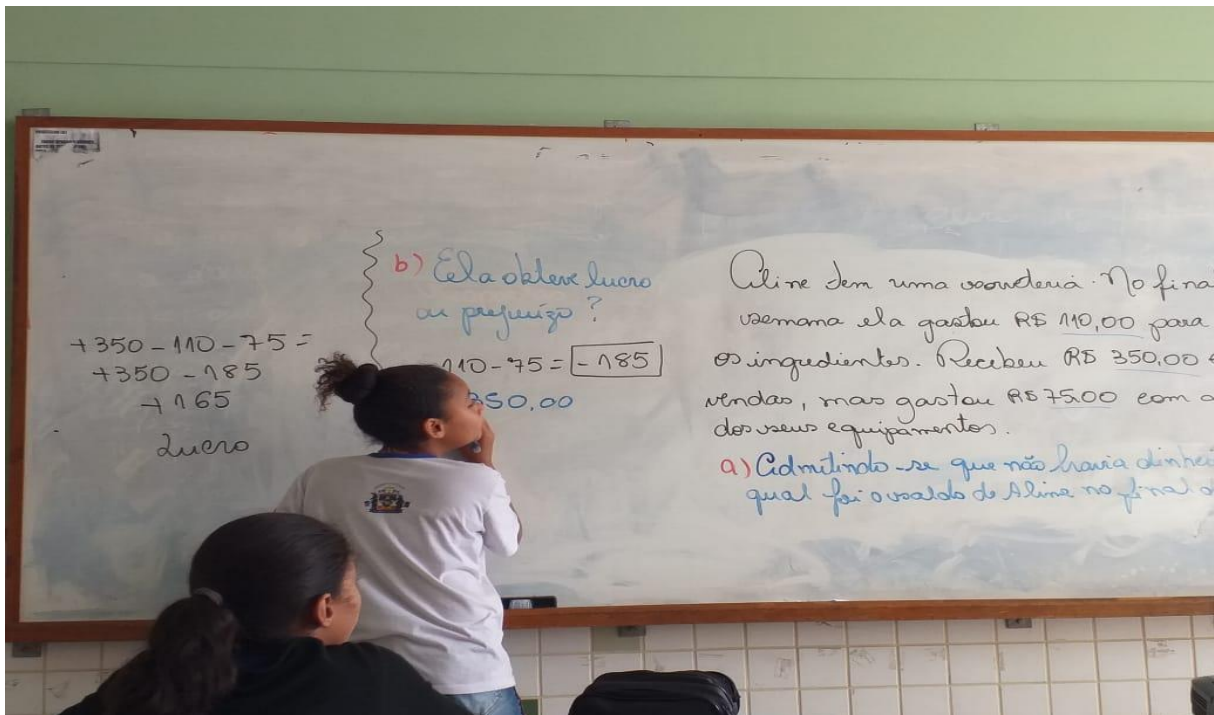 +350-110-75=
+350-185
+165
Lucro
b) Ela obteve lucro
ou prejuízo?
110-75= -185
350,00
Aline tem uma sorveteria. No fina
semana ela gastou R$ 110,00 para
os ingredientes. Recebeu R$ 350,00
vendas, mas gastou R$ 75,00 com
dos seus equipamentos.
a) Admitindo-se que não havia dinhei
qual foi o saldo de Aline no final d